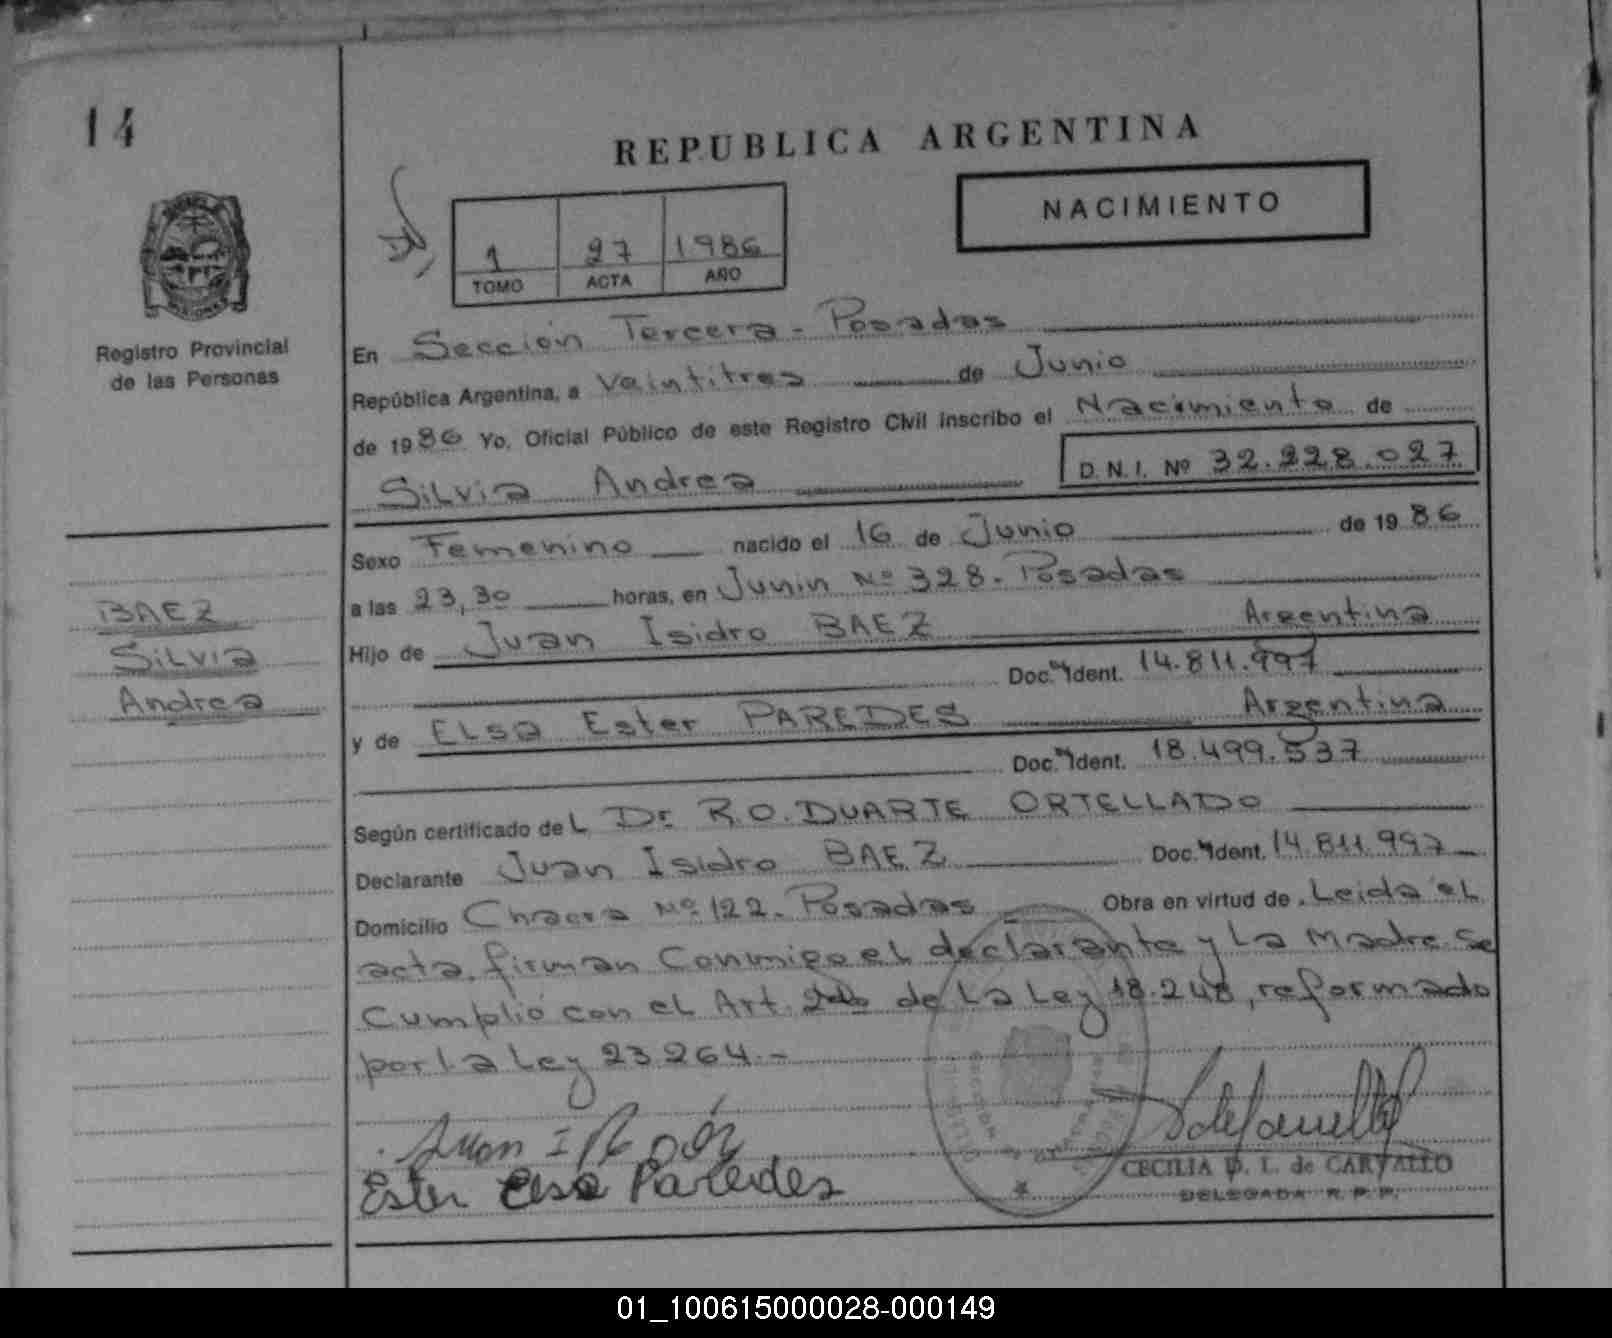 14
REPUBLICA ARGENTINA
NACIMIENTO
1 27 1986
TOMO ACTA AÑO
Registro Provincial
de las Personas
En Sección Tercera - Posadas
República Argentina, a Veintitres de Junio
de 1986 Yo, Oficial Público de este Registro Civil inscribo el Nacimiento de
Silvia Andrea D.N.I. Nº 32.228.027
Sexo Femenino nacido el 16 de Junio de 1986
a las 23,30 horas, en Junin Nº 328. Posadas
Hijo de Juan Isidro BAEZ Argentina
Doc. Ident. 14.811.997
y de Elsa Ester PAREDES Argentina
Doc. Ident. 18.499.537
Según certificado del Dr. R.O. DUARTE ORTELLADO
Declarante Juan Isidro BAEZ Doc. Ident. 14.811.997
Domicilio Chacra Nº 122. Posadas Obra en virtud de Leida el
acta, firman conmigo el declarante y la Madre se
cumplió con el Art. 2do de la Ley 18.248, reformado
por la Ley 23.264.-
BAEZ
Silvia
Andrea
Juan I
Ester Elsa Paredes
CECILIA D. L. de CARVALLO
DELEGADA R. P. P.
01_100615000028-000149